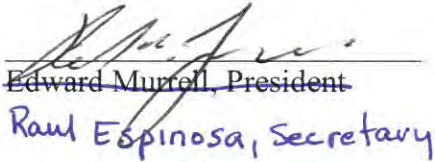 Edward Murrell, President
Raul Espinosa, Secretary